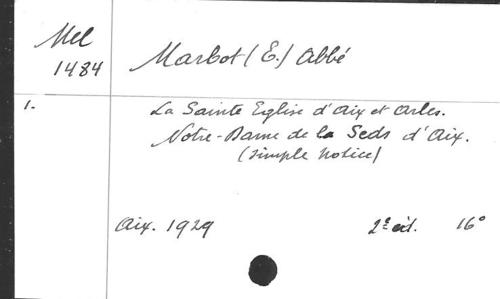 Mel
1484
Marbot (E.) Abbé
1.
La Sainte Eglise d'Aix et Arles.
Notre-Dame de la Seds d'Aix.
(simple notice)
Aix. 1929 2e éd. 16°